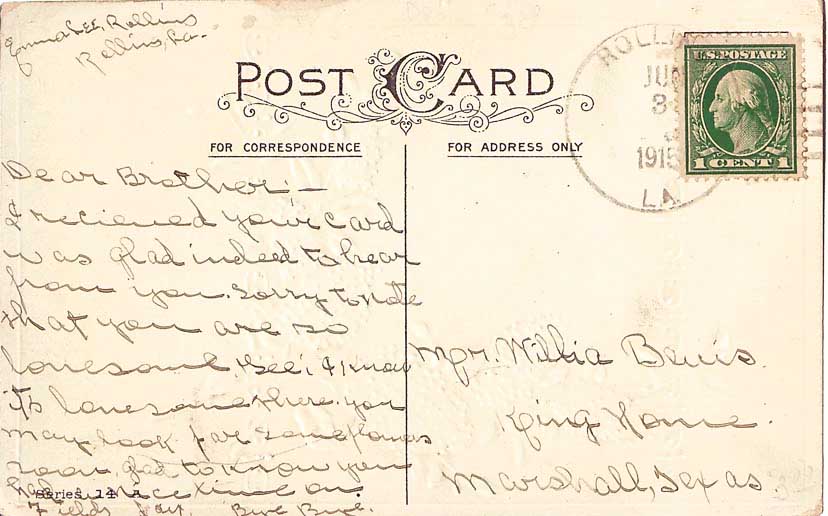 Emma Lee, Rollins
Rollins, La.
POST CARD
FOR CORRESPONDENCE
FOR ADDRESS ONLY
ROLLI
JUN
3
1915
LA.
U.S. POSTAGE
1 CENT 1
Dear Brother;—
I recieved your card
was glad indeed to hear
from you. Sorry to note
that you are so
lonesome, Gee; I know
its lonesome there. you
may look for some flowers
soon, glad to know you
had a nice time on
Fields day, Bye Bye.
Series 14 A
Mr. Willia
King Home
Marshall, Texas.